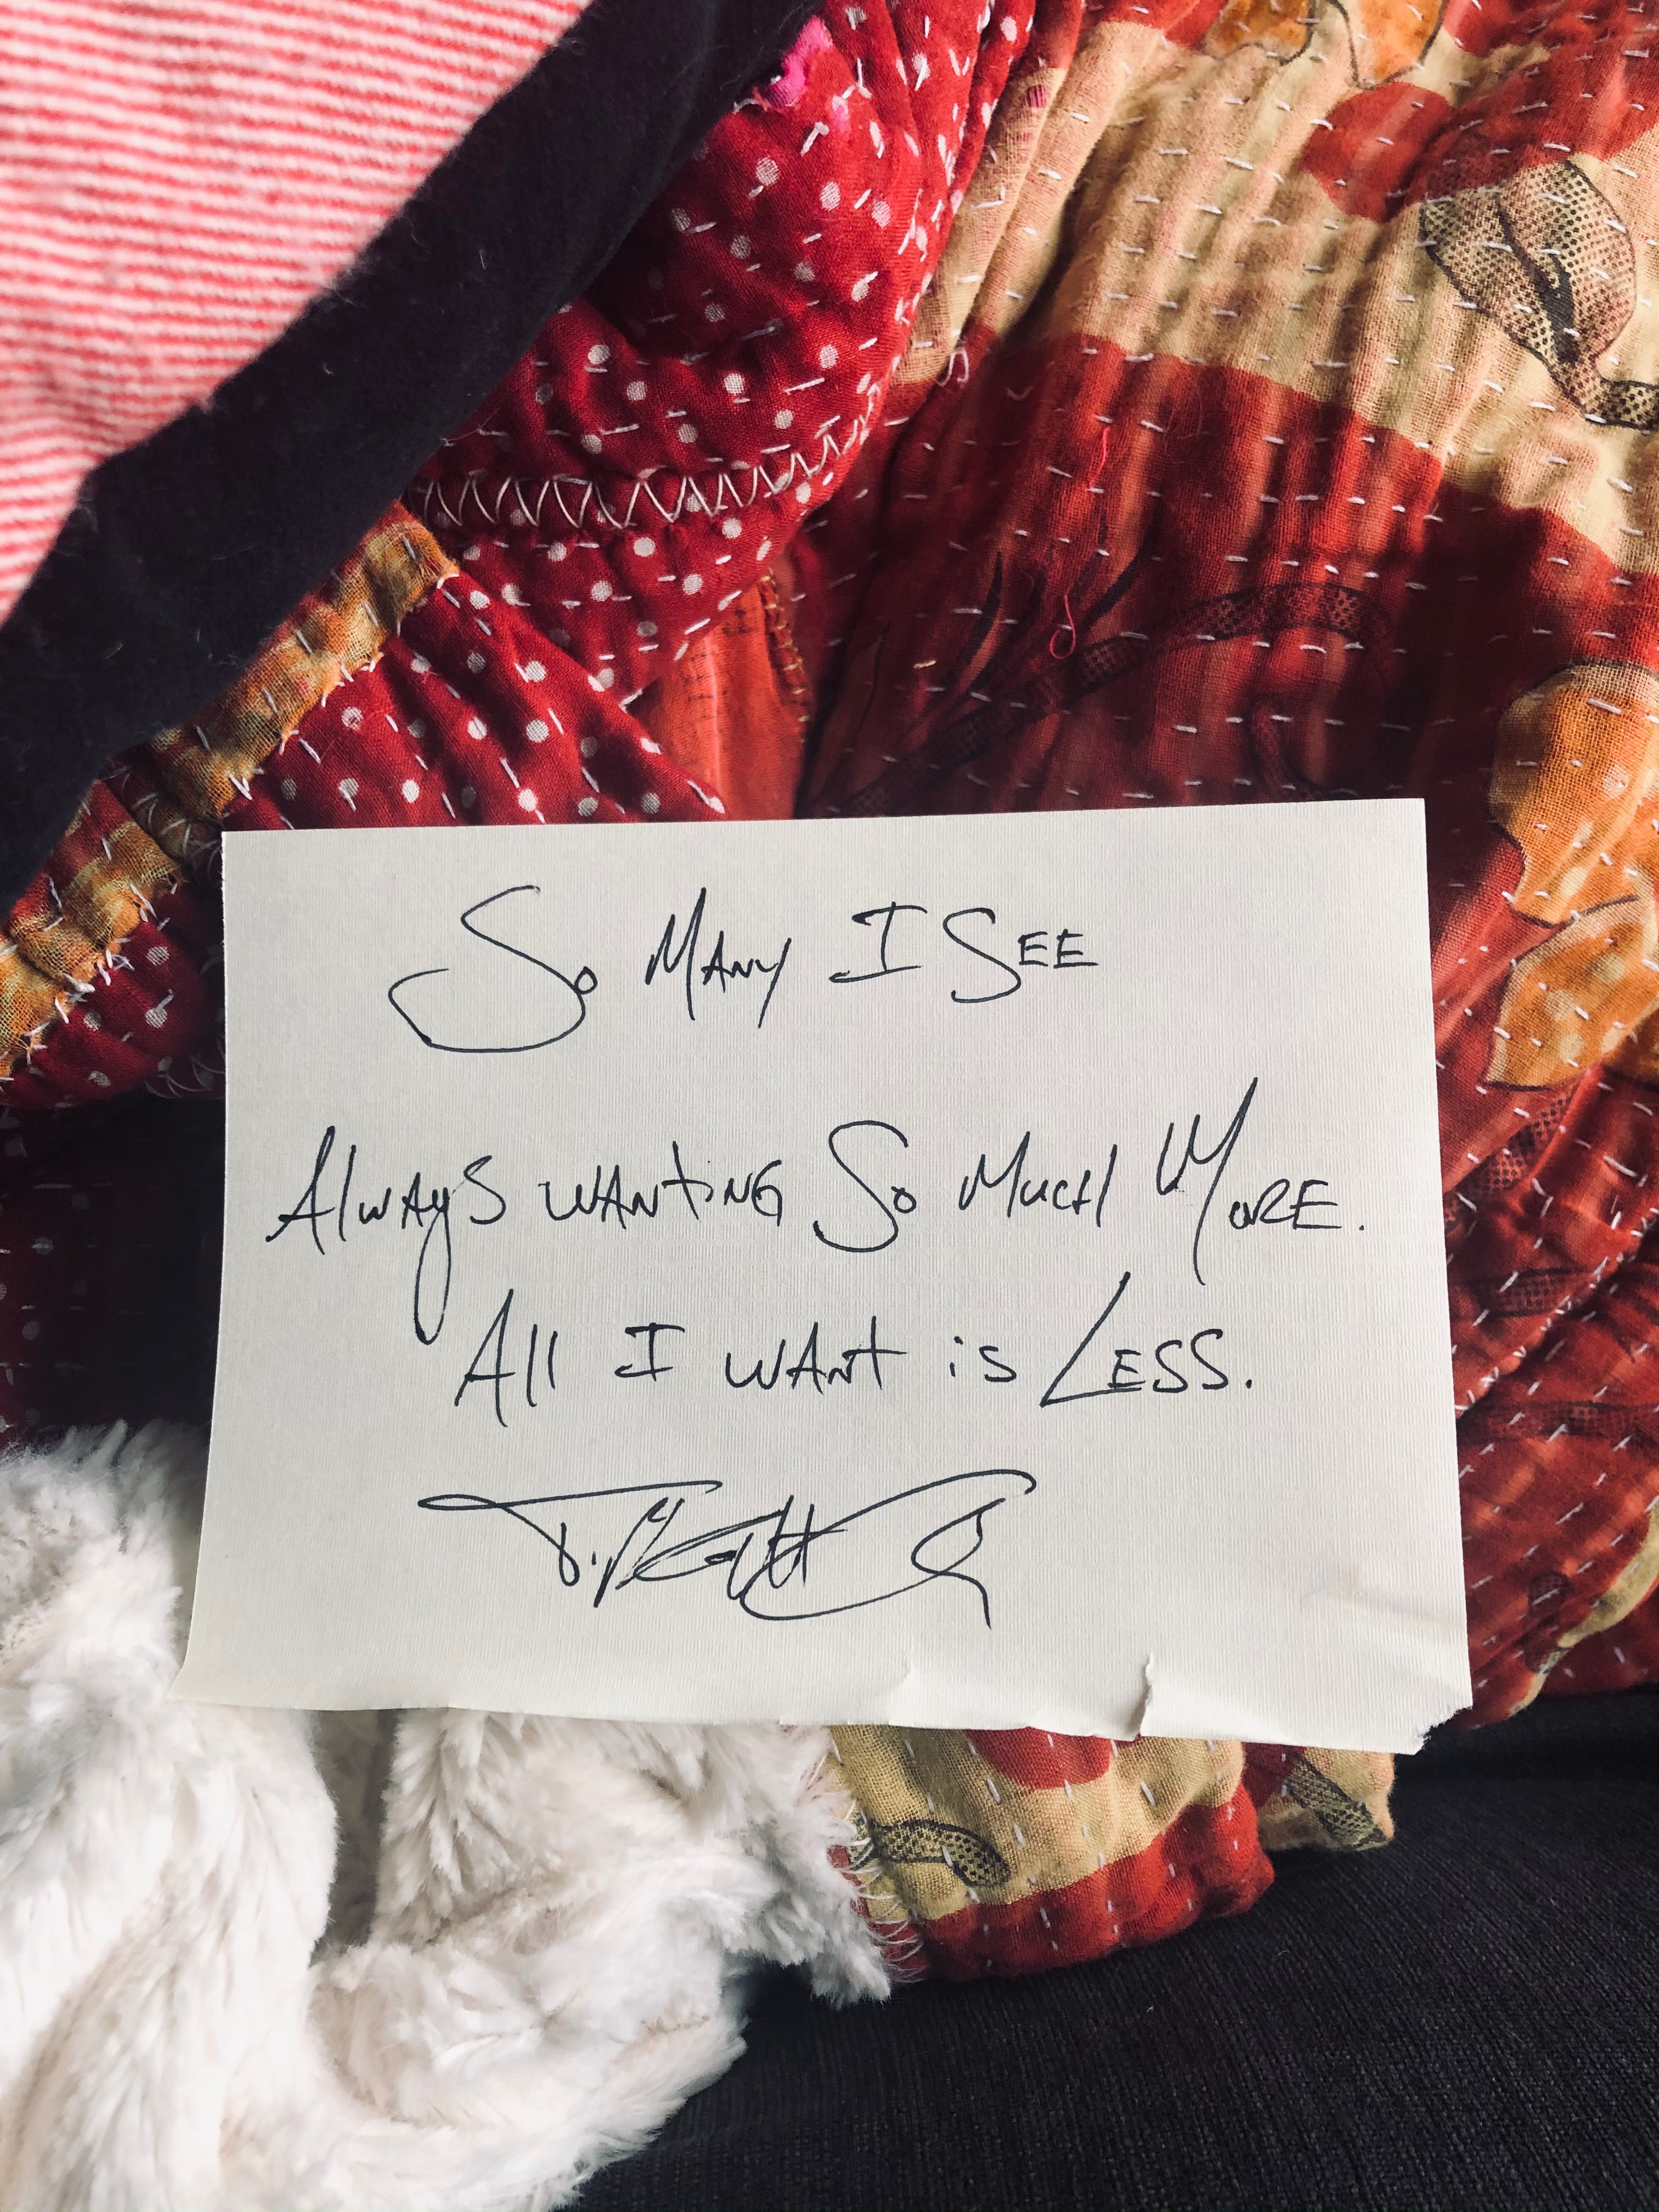 So MANY I SEE
AlwAyS wANtiNG So MucH MoRE.
All I wANt is LESS.